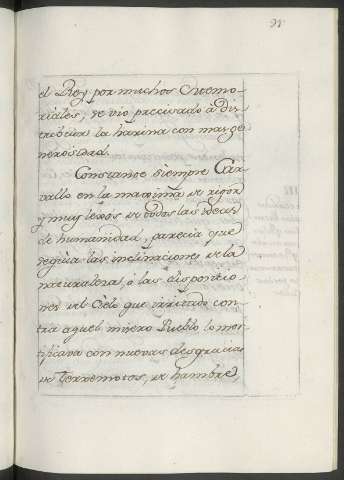 95
el Rey por muchos Memo-
riales, se vio precisado à dis-
tribuir la harina con mas ge-
nerosidad.
Constante siempre Car-
vallo en la maxima de rigor
y muy lexos de todas las ideas
de humanidad, parecia que
seguia las inclinaciones de la
naturaleza, ò las disposicio-
nes del Cielo que irritado con-
tra aquel misero Pueblo lo mor-
tificava con nuevas desgracias
de terremotos, de hambre,